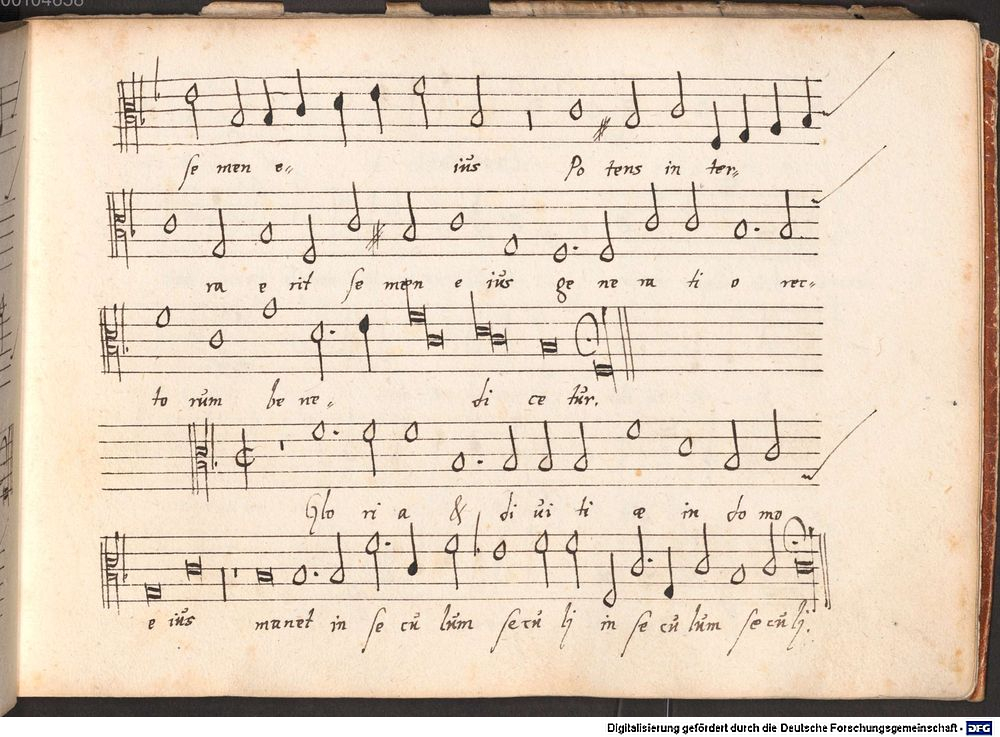 00104838
se men e- iūs Po tens in ter-
ra e rit se men e iūs ge ne ra ti o rec-
to rūm be ne- di ce tūr.
Glo ri a & di ūi ti æ in do mo
e iūs manet in se cū lūm se cū lj in se cū lūm se cū lj.
Digitalisierung gefördert durch die Deutsche Forschungsgemeinschaft - DFG